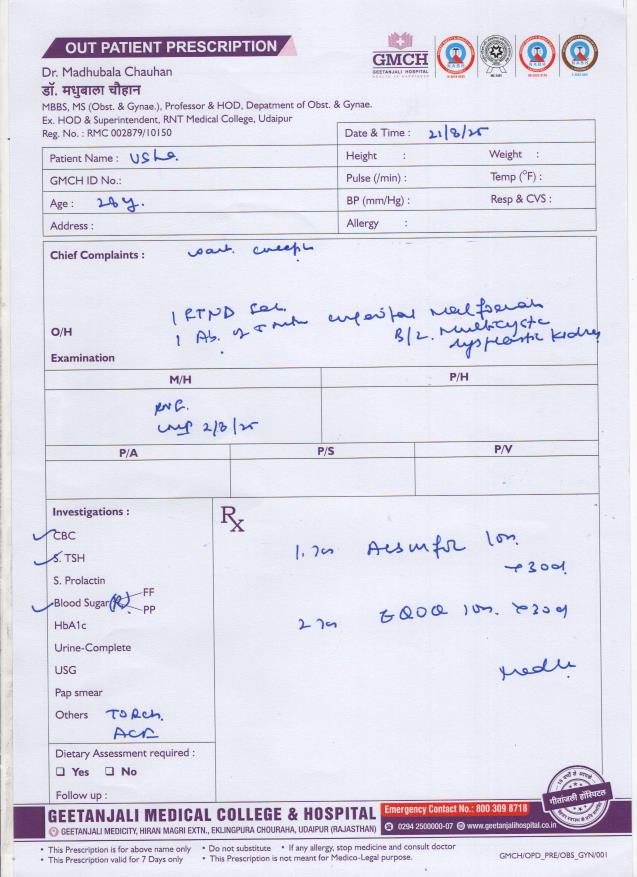 OUT PATIENT PRESCRIPTION
GMCH
GEETANJALI HOSPITAL
Dr. Madhubala Chauhan
डॉ. मधुबाला चौहान
MBBS, MS (Obst. & Gynae.), Professor & HOD, Depatment of Obst. & Gynae.
Ex. HOD & Superintendent, RNT Medical College, Udaipur
Reg. No. : RMC 002879/10150
Date & Time : 21/8/25
Patient Name : Usha
Height :
Weight :
GMCH ID No.:
Pulse (/min) :
Temp (°F) :
Age : 28y.
BP (mm/Hg) :
Resp & CVS :
Address :
Allergy :
Chief Complaints : want
1 FTND
O/H
1 Ab. of
B/L. Multicystic
dysplastic kidney
Examination
M/H
P/H
LMP 2/8/25
P/A
P/S
P/V
Investigations :
Rx
CBC
S. TSH
S. Prolactin
Blood Sugar (R) FF
PP
HbA1c
Urine-Complete
USG
Pap smear
Others TORCH
1.
x 30d
2 x 30d
Dietary Assessment required :
Yes No
Follow up :
गीतांजली हॉस्पिटल
GEETANJALI MEDICAL COLLEGE & HOSPITAL
GEETANJALI MEDICITY, HIRAN MAGRI EXTN., EKLINGPURA CHOURAHA, UDAIPUR (RAJASTHAN)
Emergency Contact No.: 800 309 8718
0294 2500000-07 www.geetanjalihospital.co.in
• This Prescription is for above name only • Do not substitute • If any allergy, stop medicine and consult doctor
• This Prescription valid for 7 Days only • This Prescription is not meant for Medico-Legal purpose.
GMCH/OPD_PRE/OBS_GYN/001